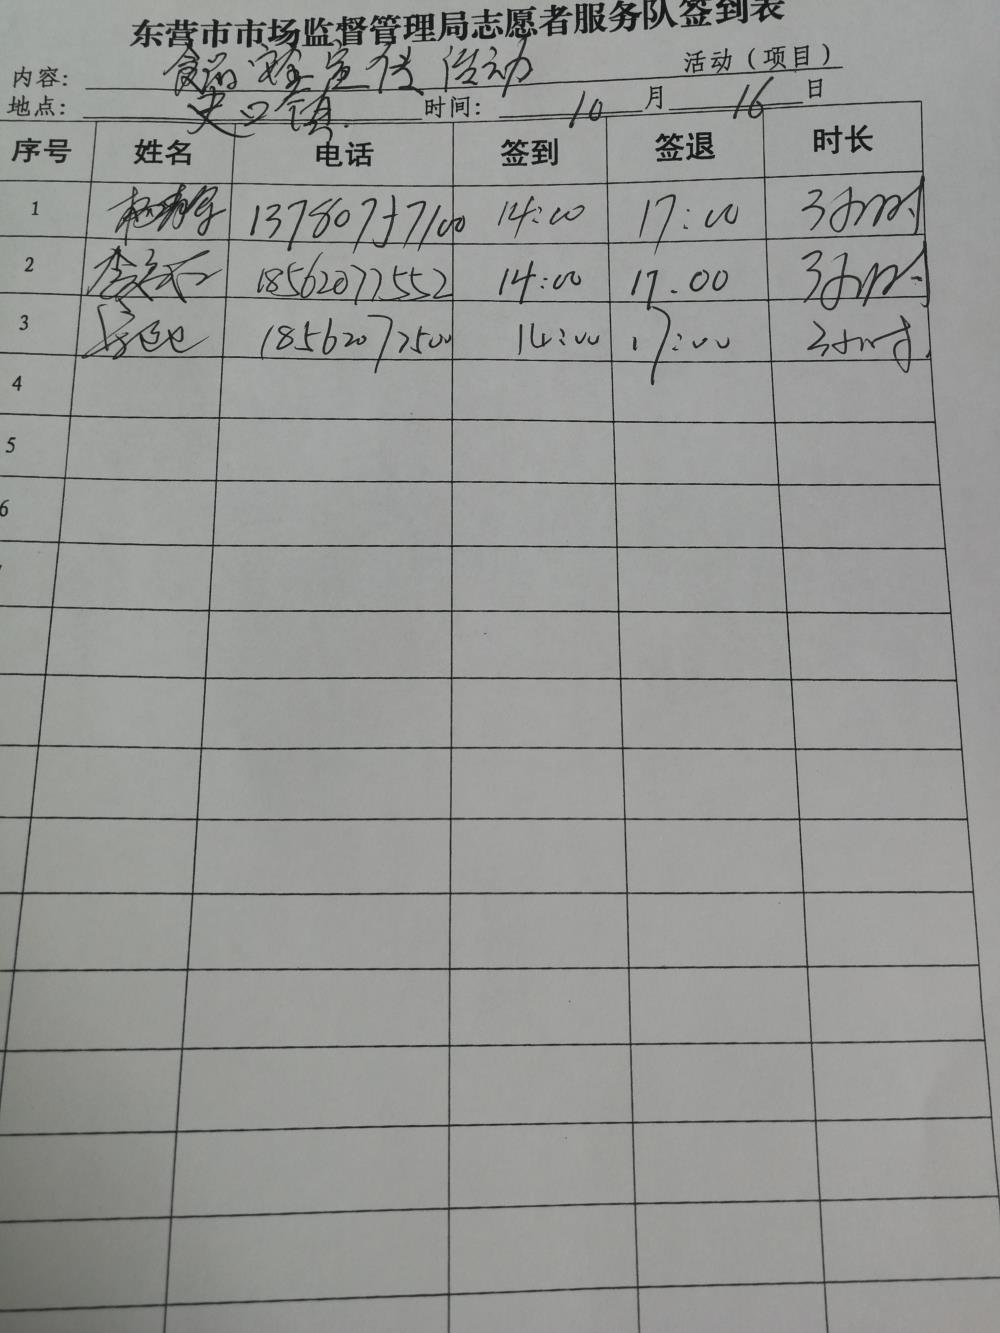 东营市市场监督管理局志愿者服务队签到表
内容: 食品安全宣传活动 活动（项目）
地点: 史口镇 时间: 10 月 16 日
序号 姓名 电话 签到 签退 时长
1 14:00 17:00 3小时
2 18562077552 14:00 17.00 3小时
3 18562072500 14:00 17:00 3小时
4
5
6